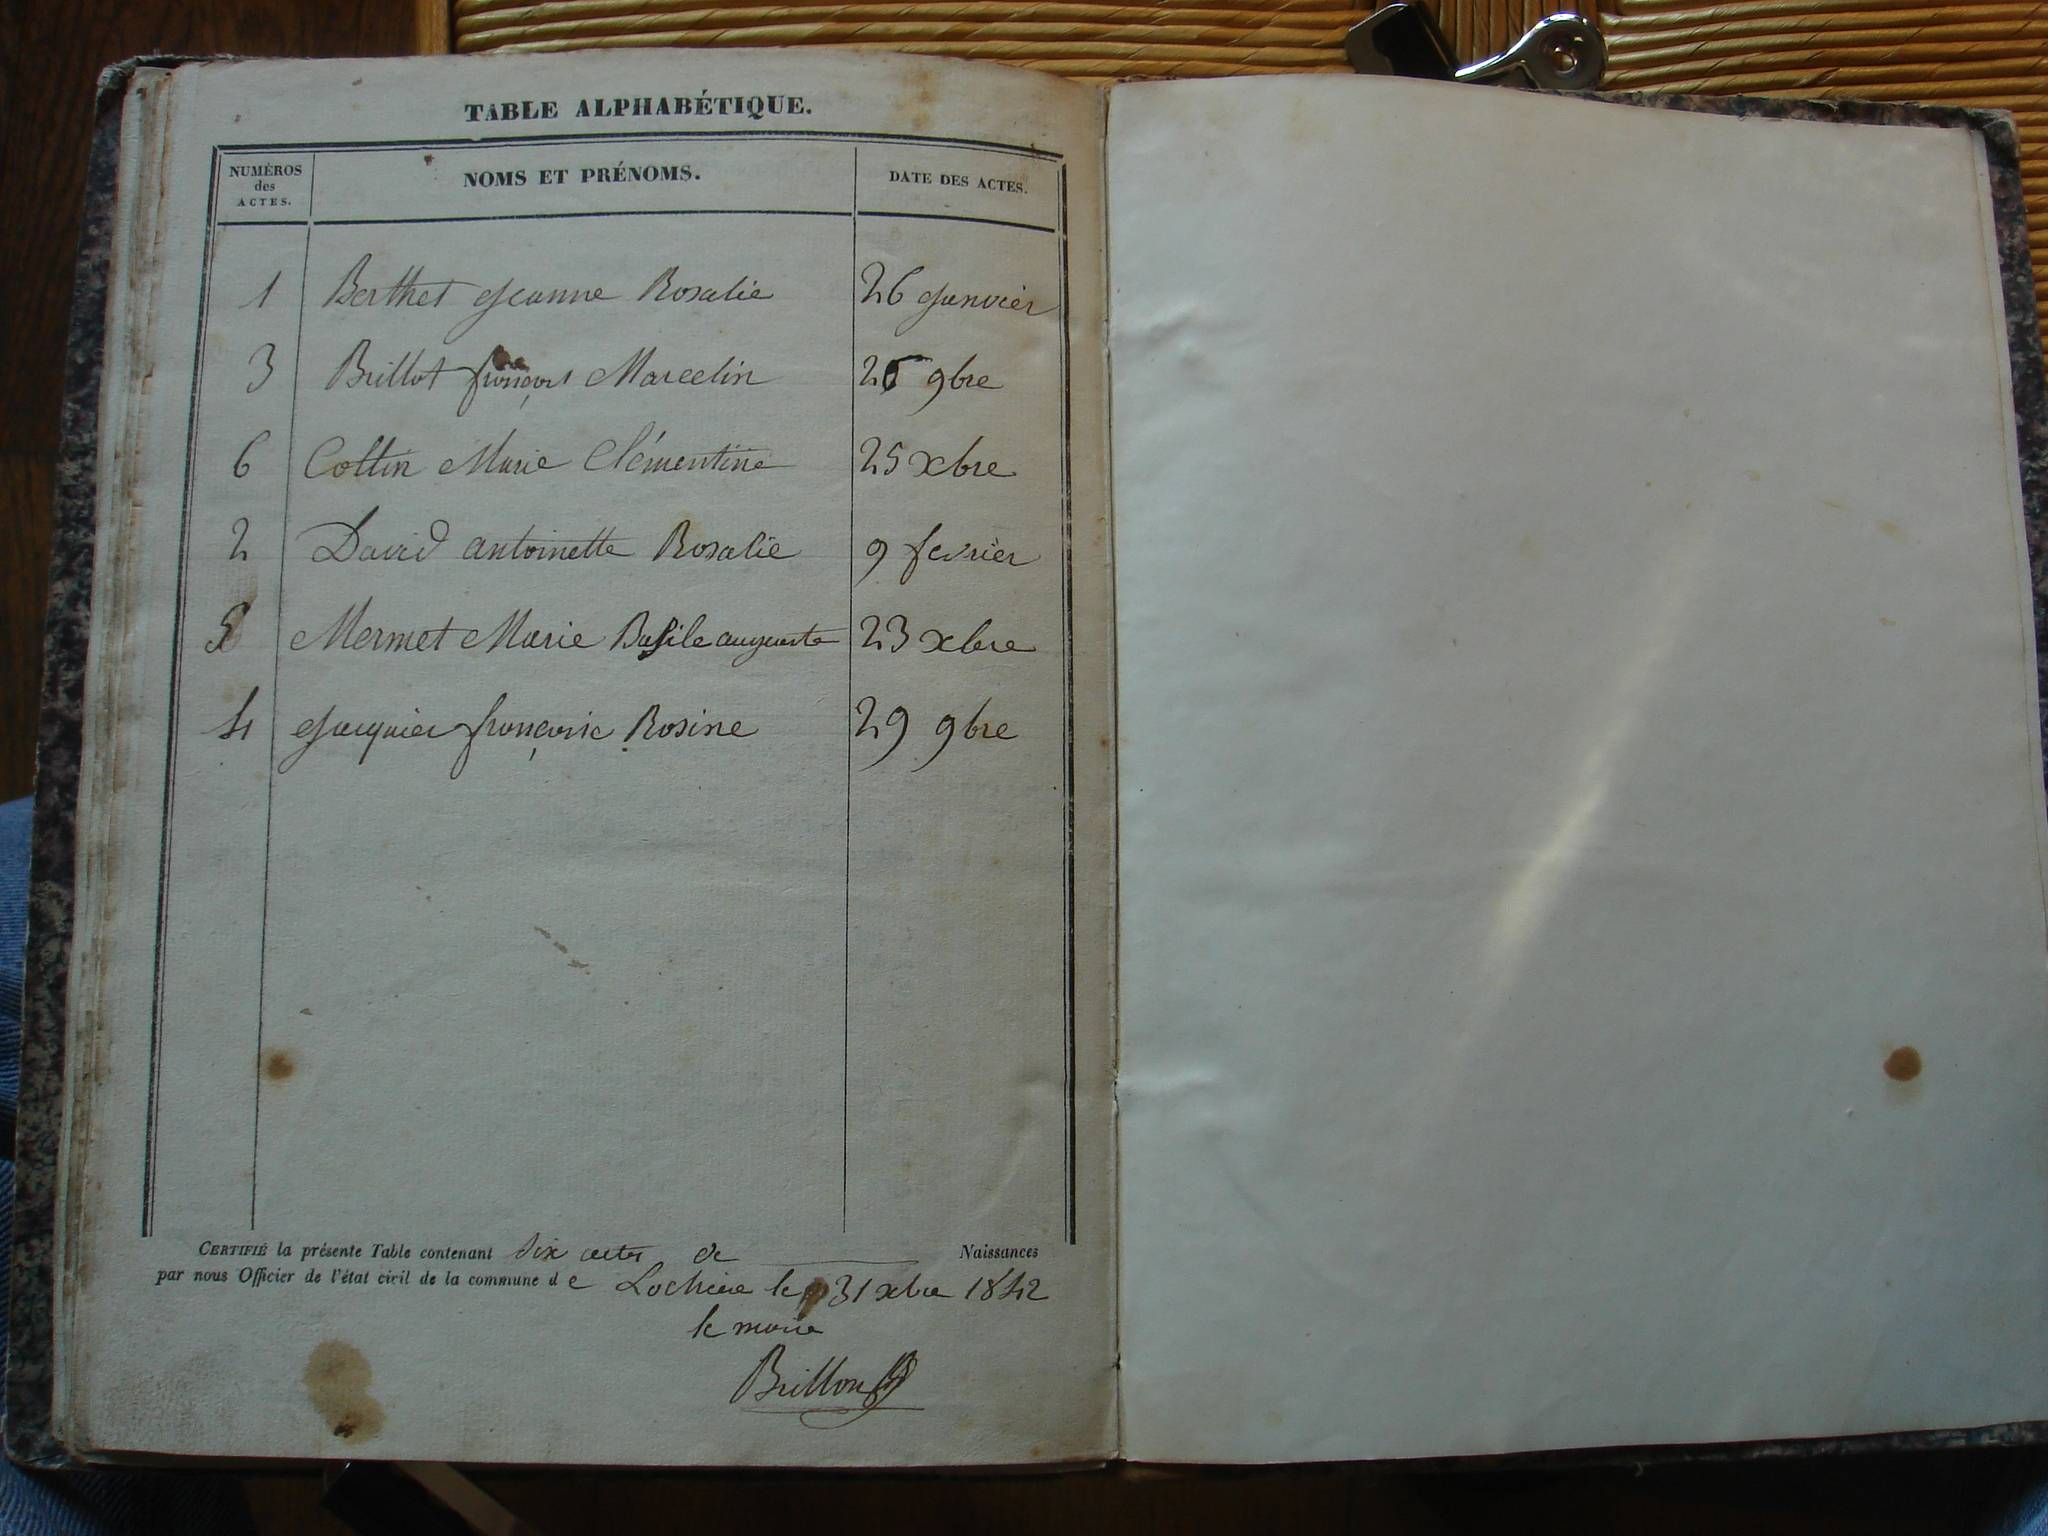 TABLE ALPHABÉTIQUE.
NUMÉROS des ACTES. NOMS ET PRÉNOMS. DATE DES ACTES.
1 Berthet Jeanne Rosalie 26 Janvier
3 Brillot françois Marcelin 25 9bre
6 Collin Marie Clémentine 25 xbre
2 David antoinette Rosalie 9 fevrier
5 Mermet Marie Basile auguste 23 xbre
4 Jacquier françoise Rosine 29 9bre
CERTIFIÉ la présente Table contenant six actes de Naissances
par nous Officier de l'état civil de la commune de le 31 xbre 1842
le maire